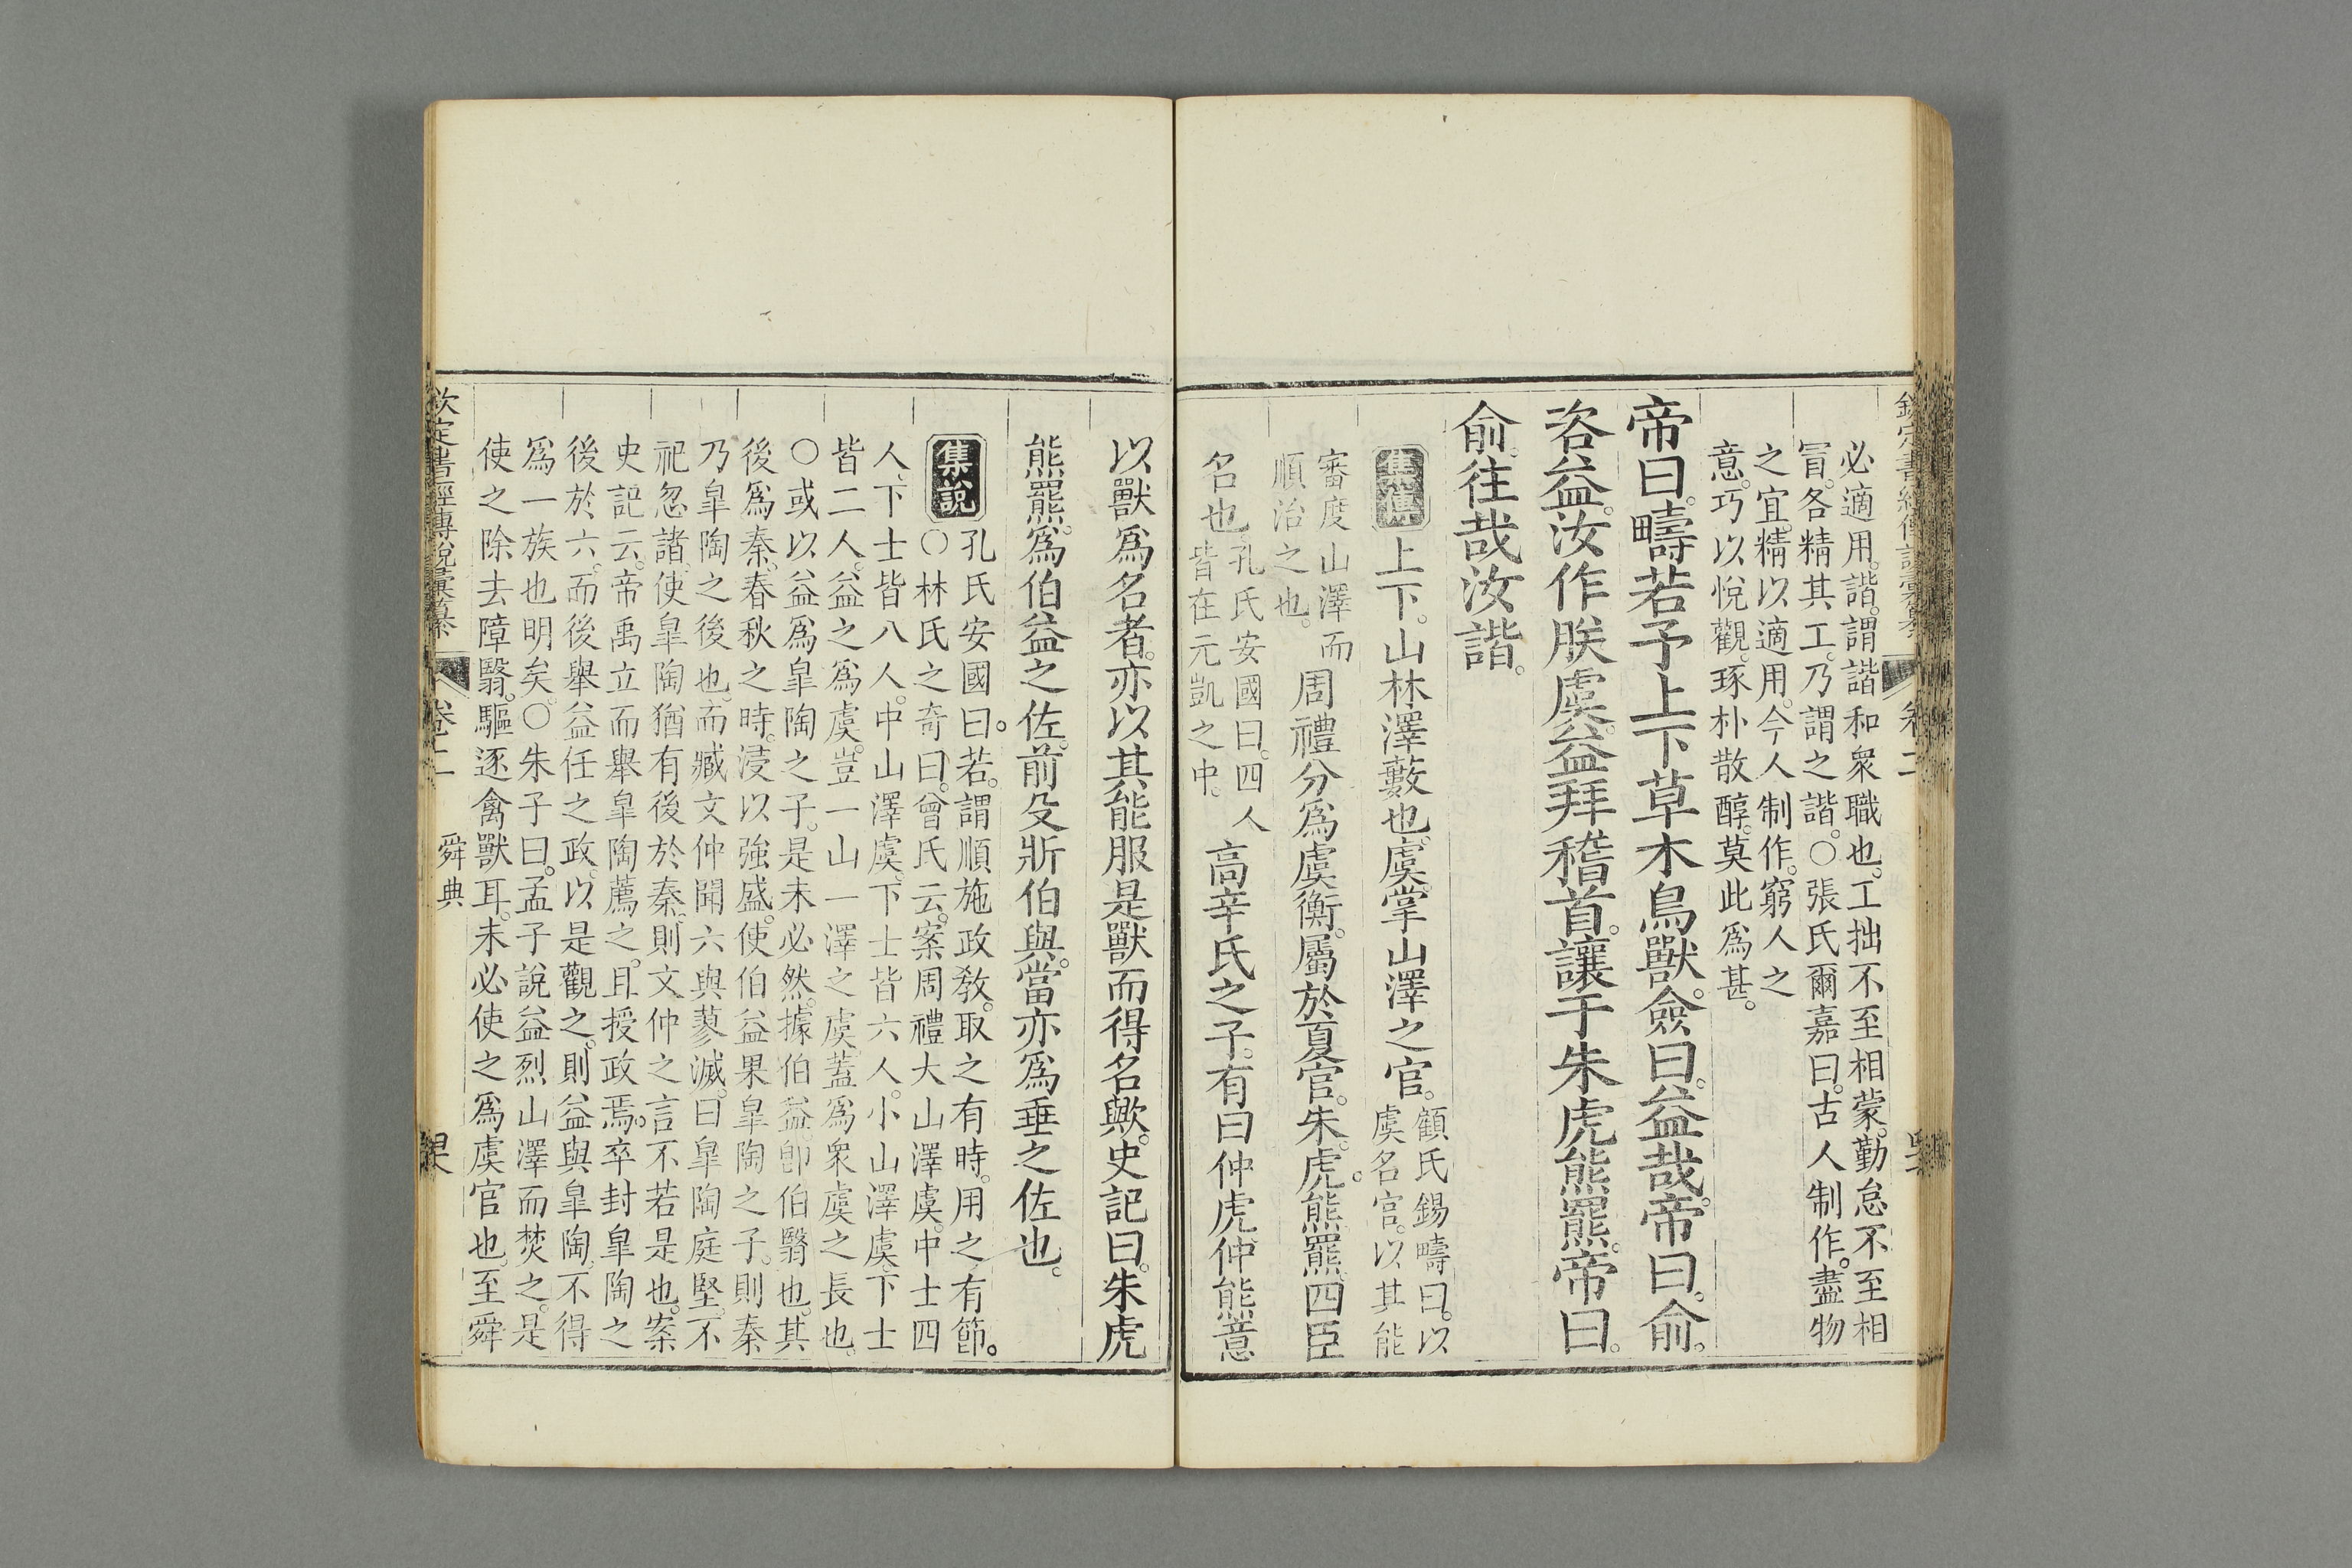 必適用。諧。謂諧和衆職也。工拙不至相蒙。勤怠不至相
冒。各精其工。乃謂之諧。○張氏爾嘉曰。古人制作。盡物
之宜。精以適用。今人制作。窮人之
意。巧以悅觀。琢朴散醇。莫此爲甚。
帝曰。疇若予上下草木鳥獸。僉曰。益哉。帝曰。俞。
咨益。汝作朕虞。益拜稽首。讓于朱虎熊羆。帝曰。
俞。往哉汝諧。
集傳
上下。山林澤藪也。虞。掌山澤之官。
顧氏錫疇曰。以
虞名官。以其能
審度山澤而
順治之也。
周禮分爲虞衡。屬於夏官。朱。虎。熊。羆。四臣
名也。
孔氏安國曰。四人
皆在元凱之中。
高辛氏之子。有曰仲虎仲熊。意
以獸爲名者。亦以其能服是獸而得名歟。史記曰。朱虎
熊羆。爲伯益之佐。前殳斨伯與。當亦爲垂之佐也。
集說
孔氏安國曰。若。謂順施政教。取之有時。用之有節。
○林氏之奇曰。曾氏云。案周禮大山澤虞。中士四
人、下士皆八人。中山澤虞。下士皆六人。小山澤虞。下士
皆二人。益之爲虞。豈一山一澤之虞。蓋爲衆虞之長也。
○或以益爲臯陶之子。是未必然。據伯益。卽伯翳也。其
後爲秦。春秋之時。浸以強盛。使伯益果臯陶之子。則秦
乃臯陶之後也。而臧文仲聞六與蓼滅。曰臯陶庭堅。不
祀忽諸。使臯陶猶有後於秦。則文仲之言不若是也。案
史記云。帝禹立而舉臯陶薦之。且授政焉。卒封臯陶之
後於六。而後舉益任之政。以是觀之。則益與臯陶。不得
爲一族也明矣。○朱子曰。孟子說益烈山澤而焚之。是
使之除去障翳。驅逐禽獸耳。未必使之爲虞官也。至舜
欽定書經傳說彙纂
卷二
舜典